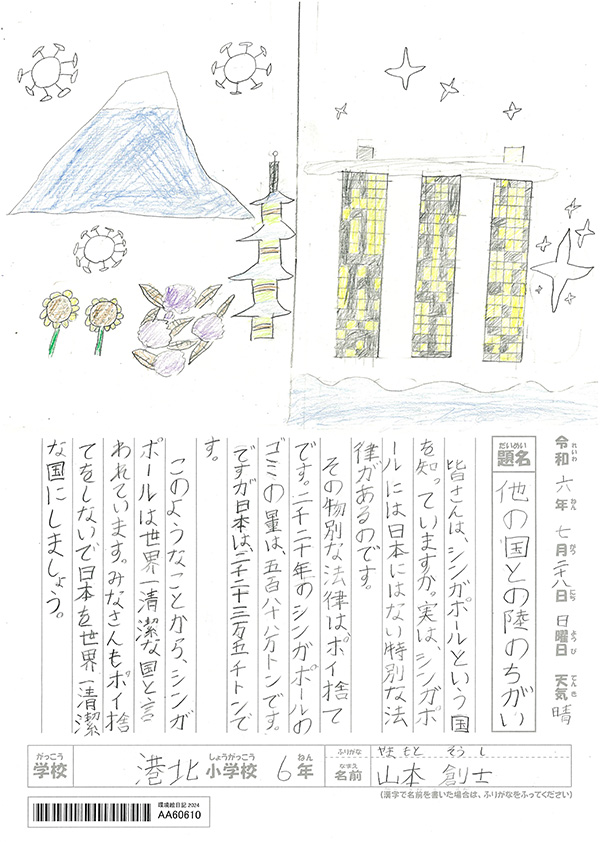 令和 六年 七月二十八日 日曜日 天気 晴
れいわ ねん がつ にち ようび てんき
だいめい
題名 他の国との陸のちがい
皆さんは、シンガポールという国
を知っていますか。実は、シンガポ
ールには日本にはない特別な法
律があるのです。
その物別な法律はポイ捨て
です。二千二十年のシンガポールの
ゴミの量は、五百八十八万トンです。
ですが日本は、二千二十三万五千トンで
す。
このようなことから、シンガ
ポールは世界一清潔な国と言
われています。みなさんもポイ捨
てをしないで日本を世界一清潔
な国にしましょう。
がっこう しょうがっこう ねん
学校 港北 小学校 6年
ふりがな やま もと そう し
なまえ
名前 山本 創士
(漢字で名前を書いた場合は、ふりがなをふってください)
環境絵日記 2024
AA60610